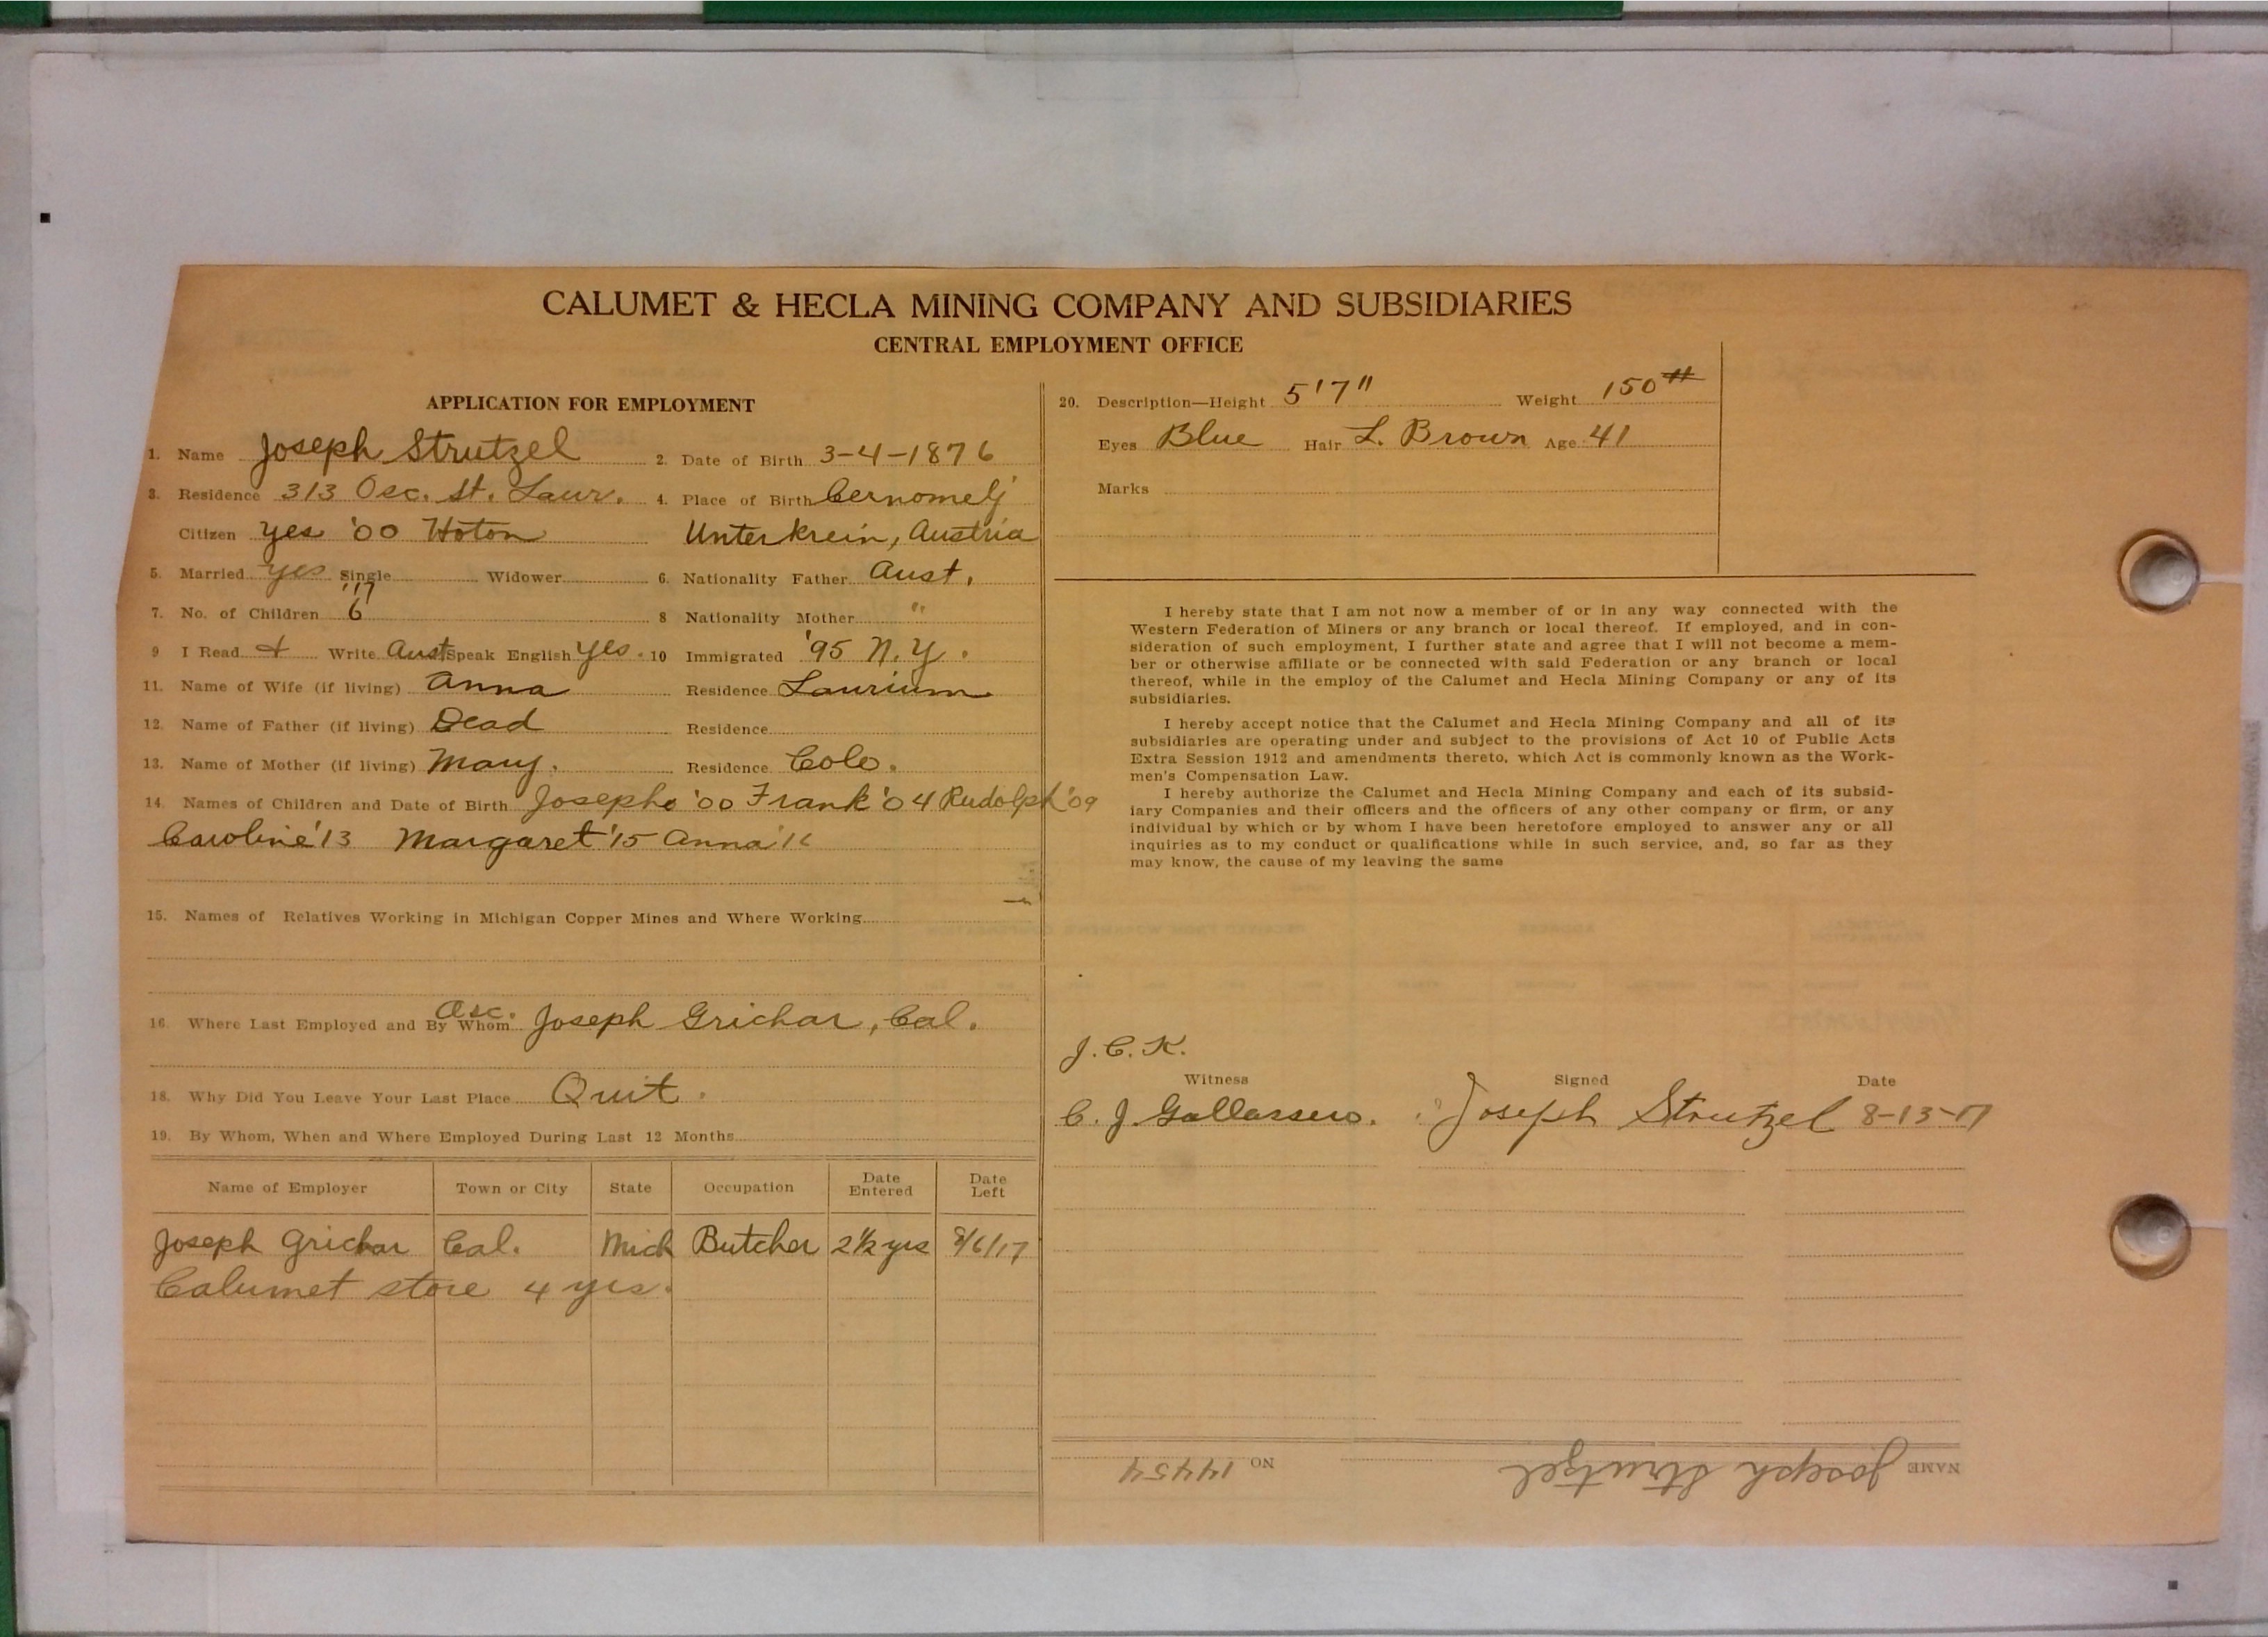 CALUMET & HECLA MINING COMPANY AND SUBSIDIARIES
CENTRAL EMPLOYMENT OFFICE
APPLICATION FOR EMPLOYMENT
1. Name Joseph Strutzel 2. Date of Birth 3-4-1876
3. Residence 313 Osc. St. Laur. 4. Place of Birth Cernomelj
Citizen yes '00 Hoton Unterkrein, Austria
5. Married yes Single Widower 6. Nationality Father Aust.
'17
7. No. of Children 6 8 Nationality Mother "
9 I Read + Write Aust Speak English yes. 10 Immigrated '95 N.Y.
11. Name of Wife (if living) Anna Residence Laurium
12. Name of Father (if living) Dead Residence
13. Name of Mother (if living) Mary. Residence Colo.
14. Names of Children and Date of Birth Josepho '00 Frank '04 Rudolph '09
Caroline '13 Margaret '15 Anna '16
15. Names of Relatives Working in Michigan Copper Mines and Where Working
Osc.
16. Where Last Employed and By Whom Joseph Grichar, Cal.
18. Why Did You Leave Your Last Place Quit.
19. By Whom, When and Where Employed During Last 12 Months
Name of Employer Town or City State Occupation Date Entered Date Left
Joseph Grichar Cal. Mich Butcher 2½ yrs 8/6/17
Calumet store 4 yrs.
20. Description—Height 5'7" Weight 150#
Eyes Blue Hair L. Brown Age 41
Marks
I hereby state that I am not now a member of or in any way connected with the
Western Federation of Miners or any branch or local thereof. If employed, and in con-
sideration of such employment, I further state and agree that I will not become a mem-
ber or otherwise affiliate or be connected with said Federation or any branch or local
thereof, while in the employ of the Calumet and Hecla Mining Company or any of its
subsidiaries.
I hereby accept notice that the Calumet and Hecla Mining Company and all of its
subsidiaries are operating under and subject to the provisions of Act 10 of Public Acts
Extra Session 1912 and amendments thereto, which Act is commonly known as the Work-
men's Compensation Law.
I hereby authorize the Calumet and Hecla Mining Company and each of its subsid-
iary Companies and their officers and the officers of any other company or firm, or any
individual by which or by whom I have been heretofore employed to answer any or all
inquiries as to my conduct or qualifications while in such service, and, so far as they
may know, the cause of my leaving the same
J. C. K.
Witness Signed Date
C. J. Gallassero. Joseph Strutzel 8-13-17
NAME Joseph Strutzel NO 14454